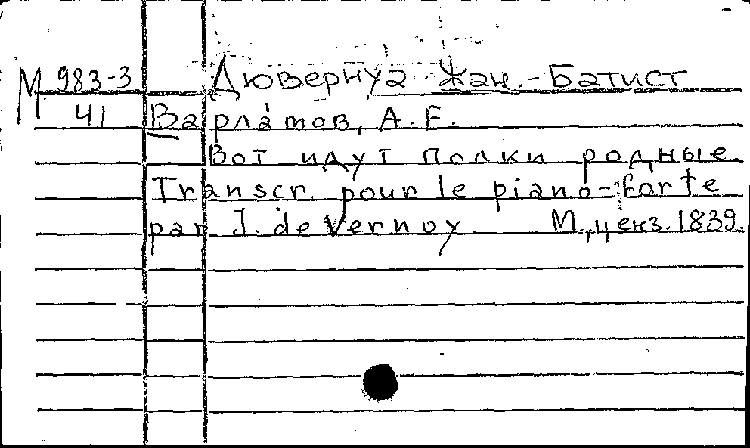 М 983-3 Дювернуа Жан-Батист
41 Варламов, А.Е.
Вот идут полки родные
Transcr. pour le piano-forte
par J. de Vernoy. М., ценз. 1839.